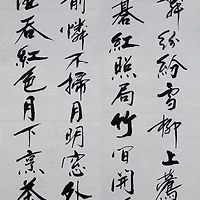 舞紛紛雪柳上鶯
碁紅照局竹間開
前憐不掃月明窓外
吞紅色月下烹茶